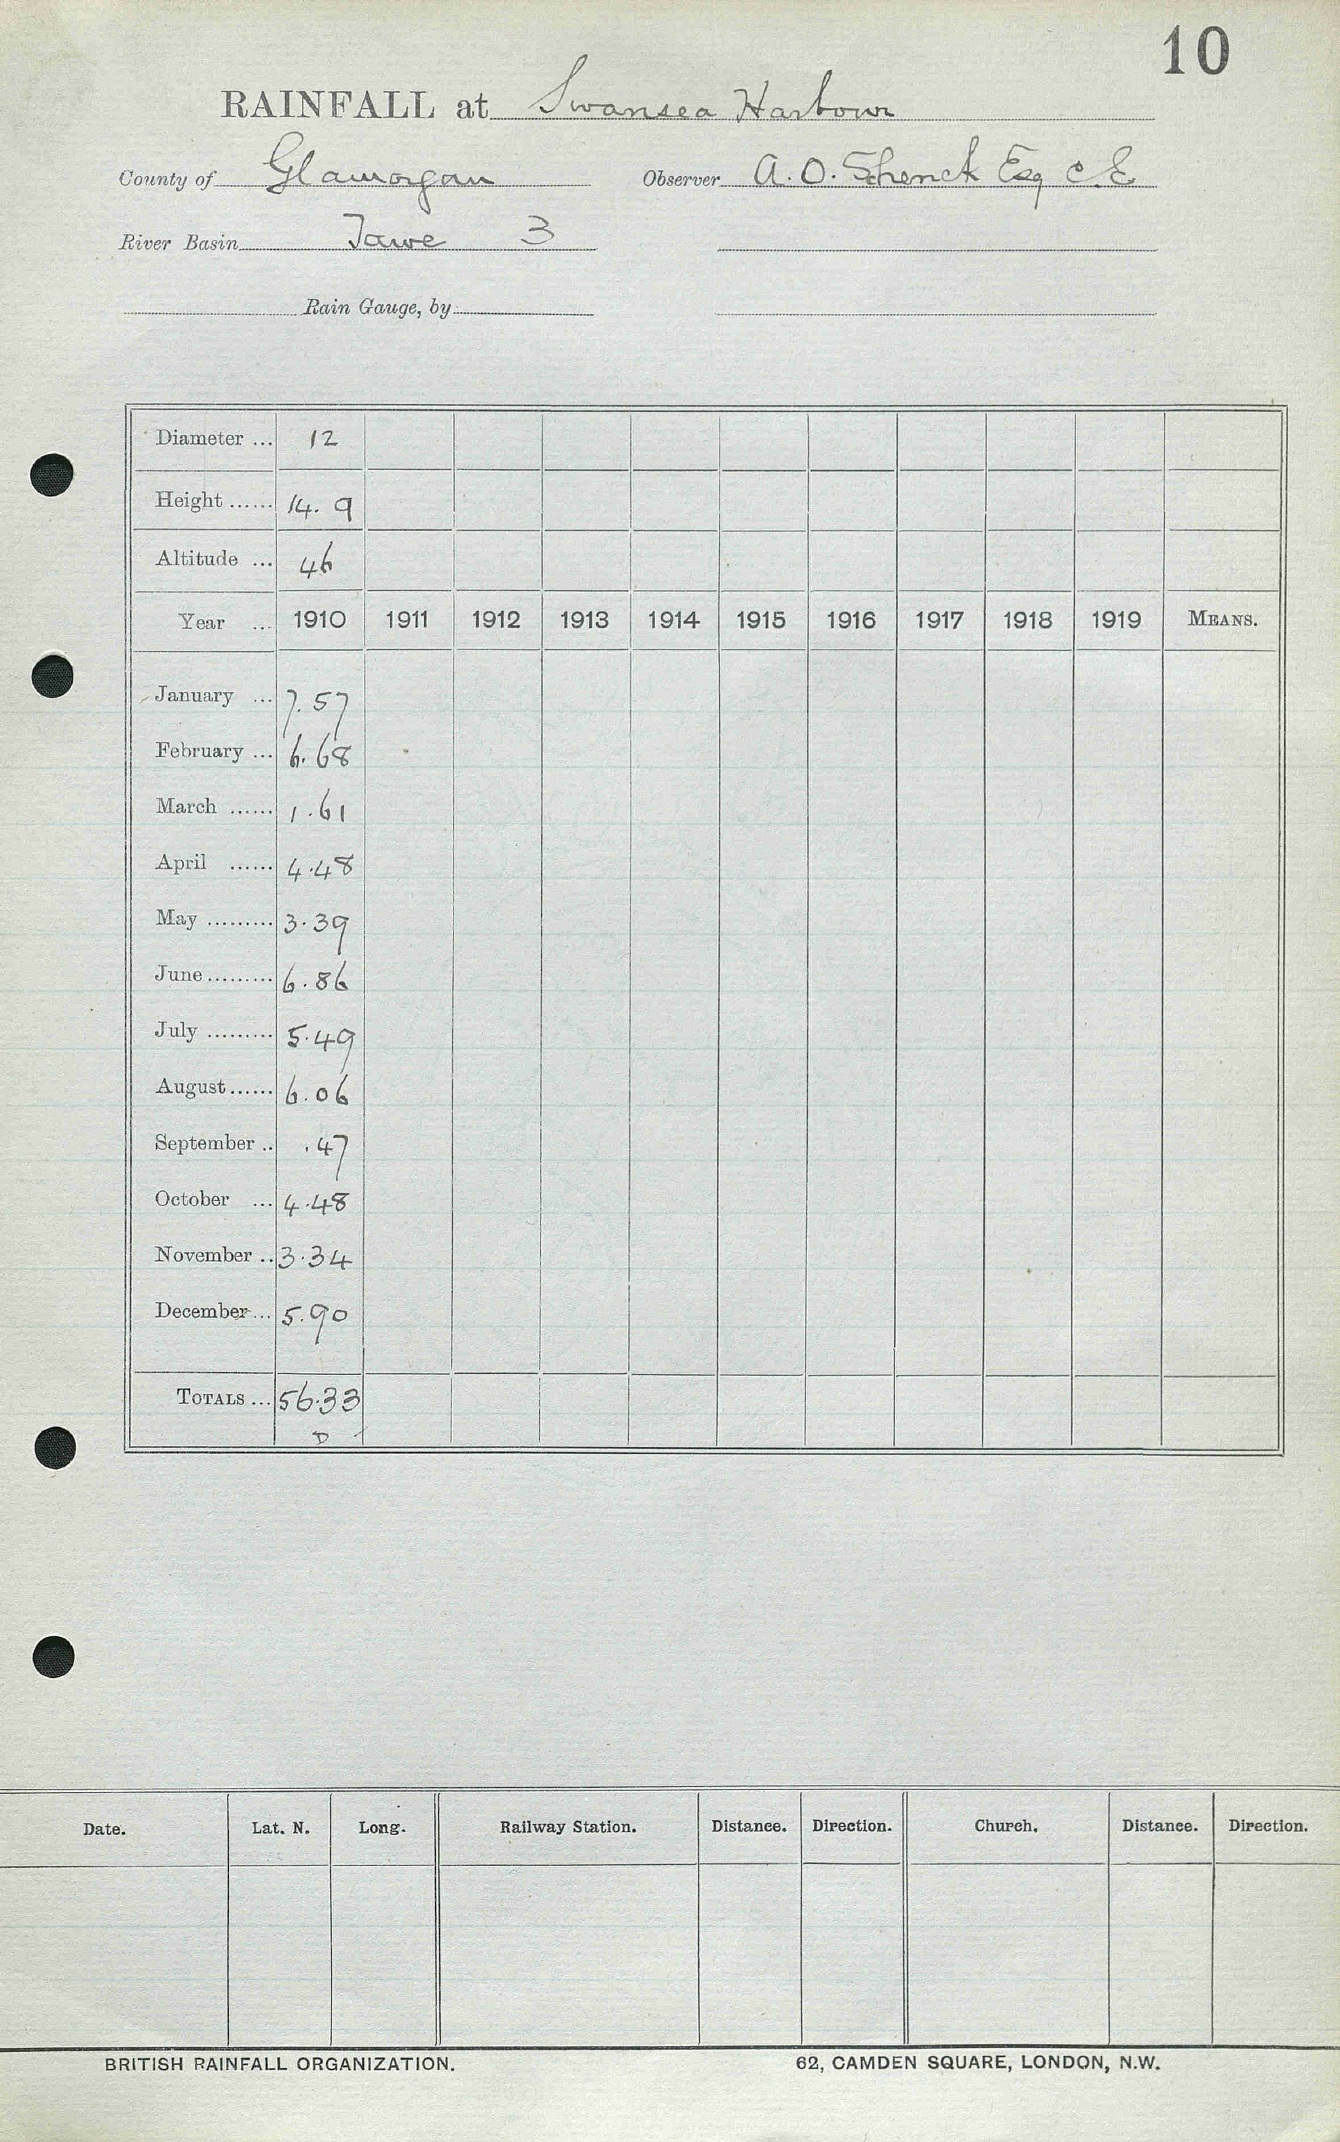 10
RAINFALL at Swansea Harbour
County of Glamorgan Observer A. O. Schenck Esq C.E
River Basin Tawe 3
Rain Gauge, by
Diameter ... 12
Height ...... 14. 9
Altitude ... 46
Year ... 1910 1911 1912 1913 1914 1915 1916 1917 1918 1919 MEANS.
January ... 7.57
February ... 6.68
March ...... 1.61
April ...... 4.48
May ......... 3.39
June ......... 6.86
July ......... 5.49
August ...... 6.06
September .. .47
October ... 4.48
November .. 3.34
December ... 5.90
TOTALS ... 56.33
D
Date. Lat. N. Long. Railway Station. Distance. Direction. Church. Distance. Direction.
BRITISH RAINFALL ORGANIZATION. 62, CAMDEN SQUARE, LONDON, N.W.